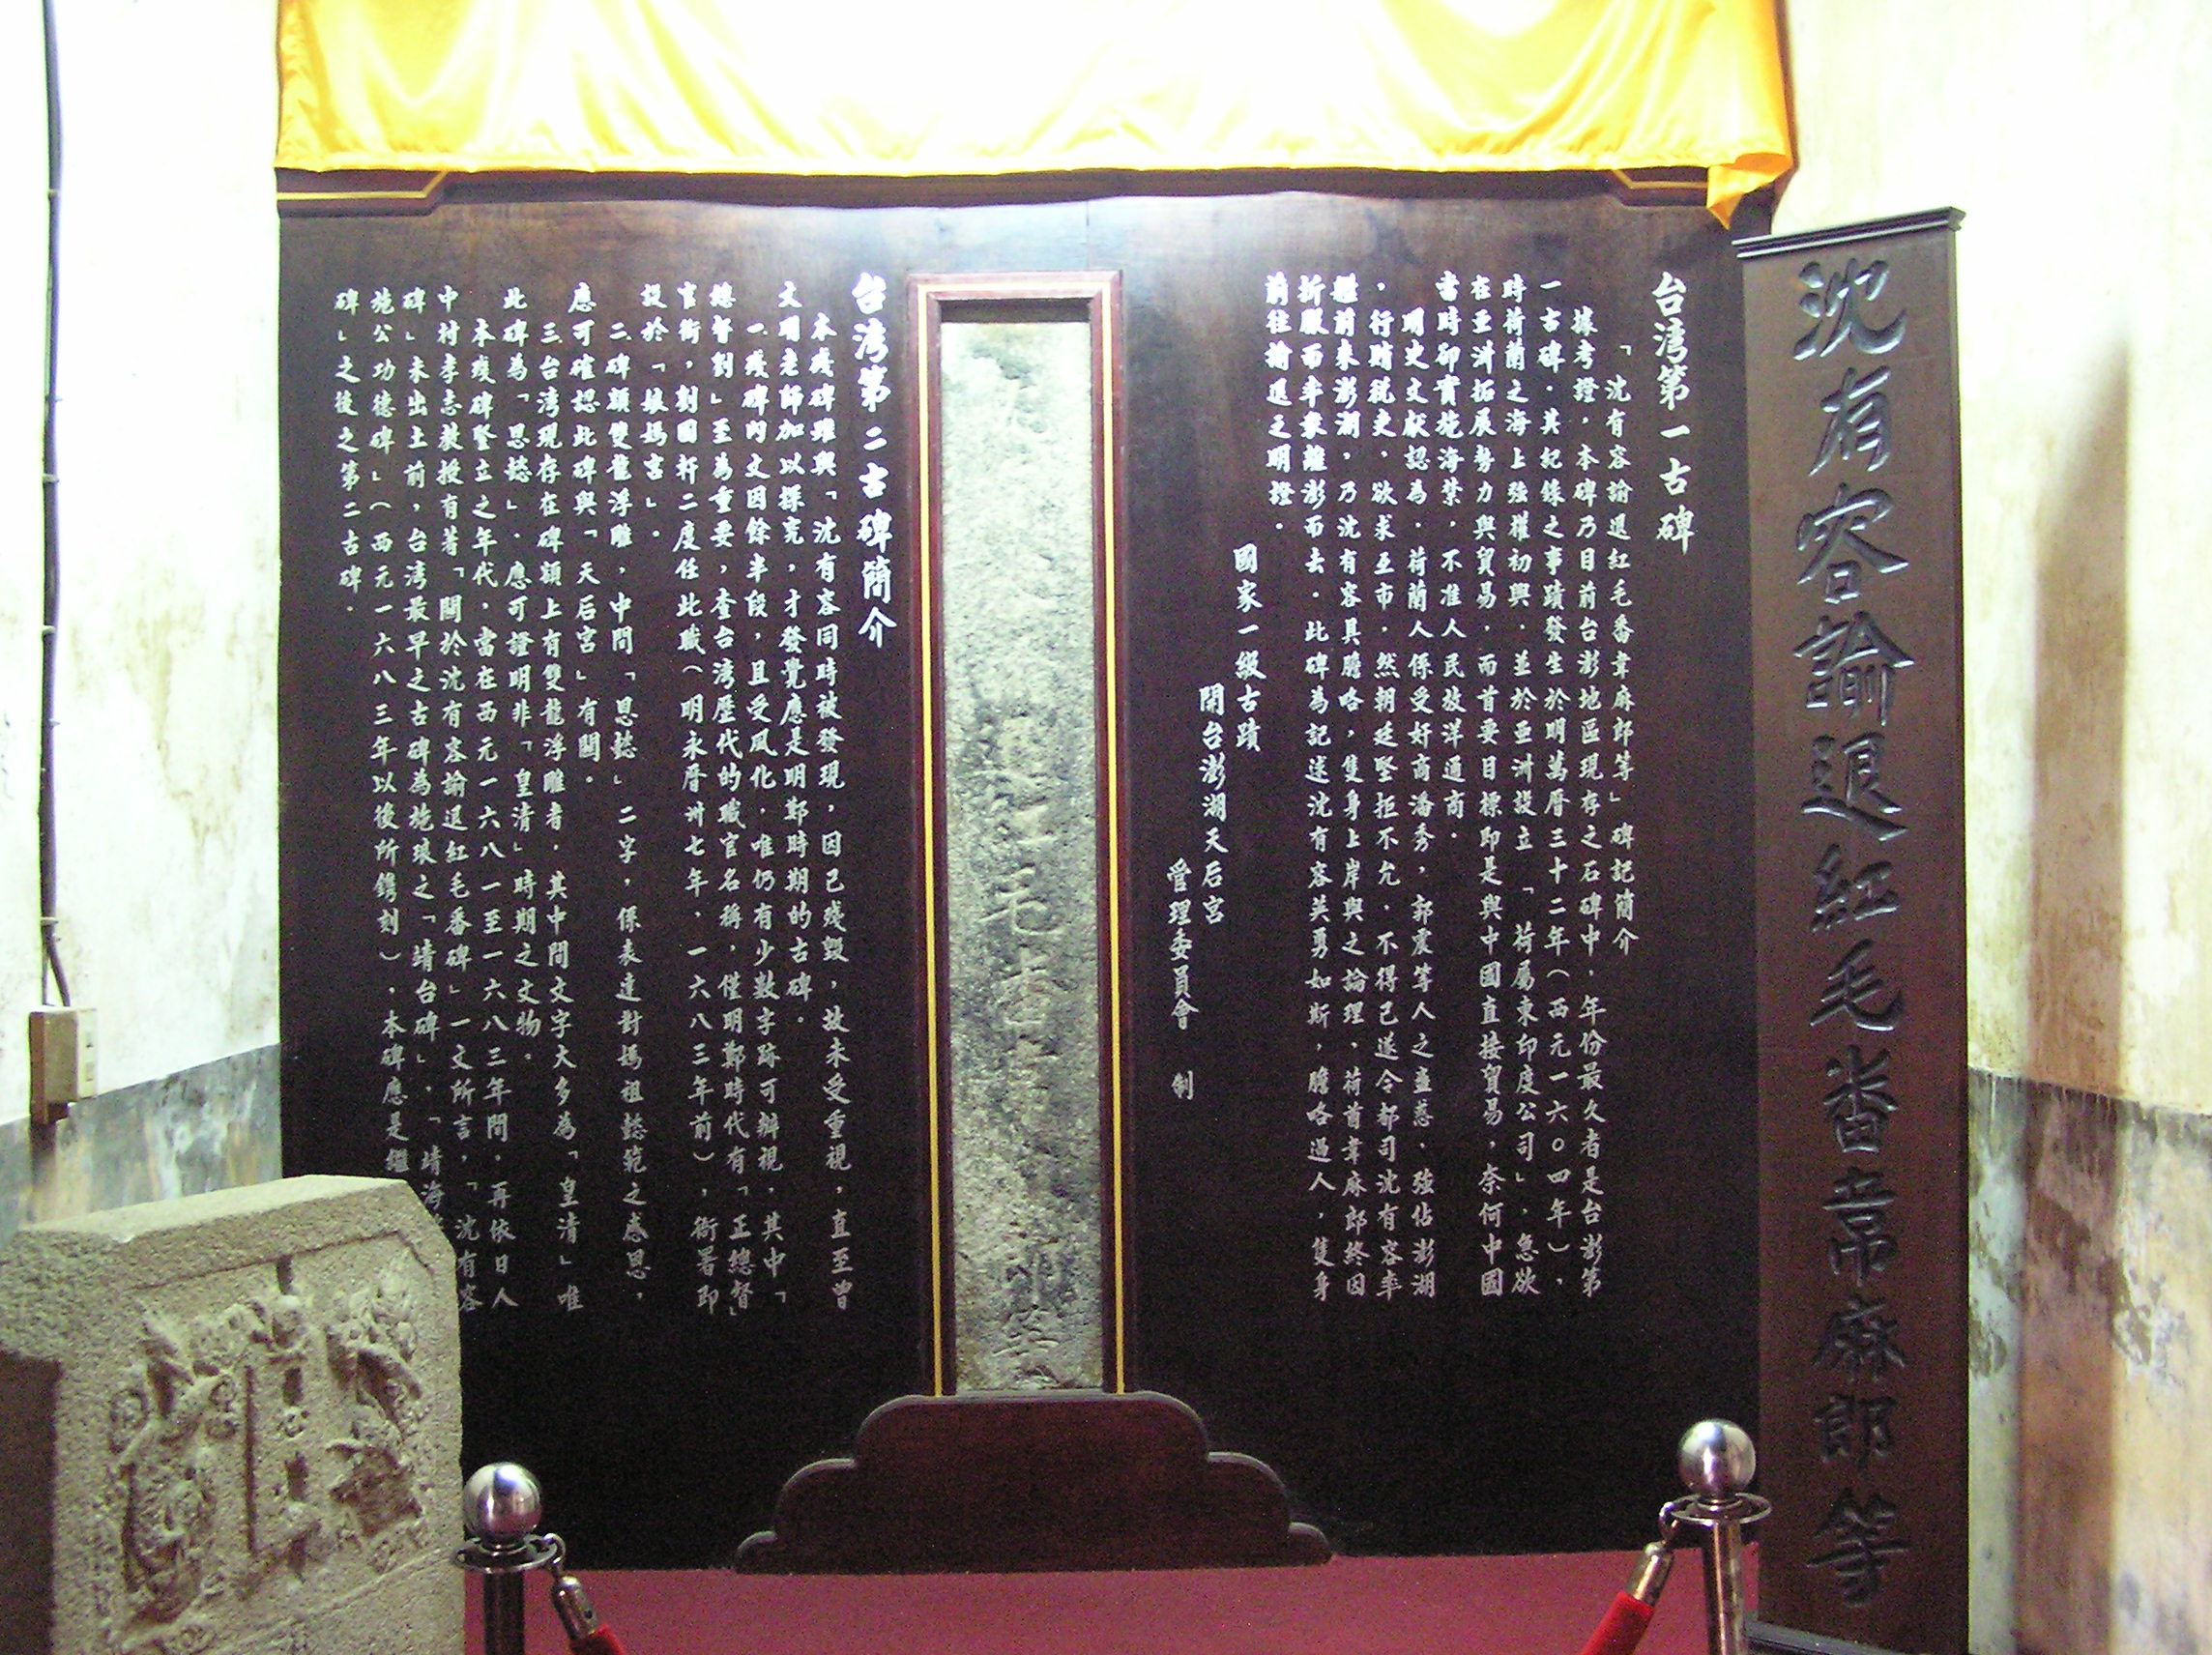 沈有容諭退紅毛番韋麻郎等
台湾第一古碑
「沈有容諭退紅毛番韋麻郎等」碑記簡介
據考證，本碑乃目前台澎地區現存之石碑中，年份最久者是台澎第
一古碑．其紀錄之事蹟發生於明萬曆三十二年（西元一六○四年），
時荷蘭之海上強權初興．並於亞洲設立「荷屬東印度公司」．急欲
在亞洲拓展勢力與貿易．而首要目標即是與中國直接貿易，奈何中國
當時卻實施海禁，不准人民放洋通商．
明史文獻認為．荷蘭人係受奸商潘秀，郭震等人之蠱惑．強佔澎湖
，行賄稅吏，欲求互市．然朝廷堅拒不允．不得已遂令都司沈有容率
艦前來澎湖，乃沈有容具膽略，隻身上岸與之論理．荷首韋麻郎終因
折服而率眾離澎而去．此碑為記述沈有容英勇如斯，膽略過人，隻身
前往諭退之明證．
國家一級古蹟
開台澎湖天后宮
管理委員會 制
毛番
台湾第二古碑簡介
本殘碑雖與「沈有容同時被發現，因已殘毀，故未受重視，直至曾
文明老師加以探究，才發覺應是明鄭時期的古碑．
一．殘碑內文因餘半段，且受風化．唯仍有少數字跡可辨視．其中「
總督劉」至為重要，查台湾歷代的職官名稱，僅明鄭時代有「正總督」
官銜，劉國軒二度任此職（明永曆卅七年．一六八三年前），衙署即
設於「娘媽宮」．
二碑額雙龍浮雕，中間「恩懿」二字，係表達對媽祖懿範之感恩，
應可確認此碑與「天后宮」有關。
三台湾現存在碑額上有雙龍浮雕者．其中間文字大多為「皇清」唯
此碑為「恩懿」．應可證明非「皇清」時期之文物。
本殘碑豎立之年代，當在西元一六八一至一六八三年間．再依日人
中村孝志教授有著「關於沈有容諭退紅毛番碑」一文所言，「沈有容
碑」未出土前，台湾最早之古碑為施琅之「靖台碑」，「靖海
施公功德碑」（西元一六八三年以後所鐫刻），本碑應是繼
碑」之後之第二古碑．